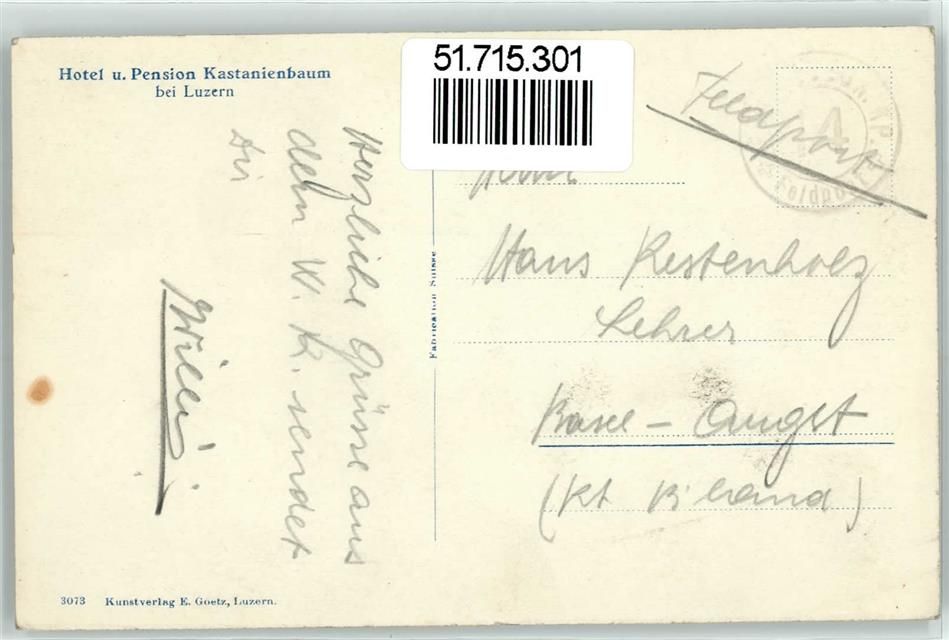 Hotel u. Pension Kastanienbaum
bei Luzern
51.715.301
Feldpost
Herzliche Grüsse aus
dem W. K. sendet
Dir
Willi
Fabrication Suisse
Herrn
Hans Restenholz
Lehrer
Basel - Augst
(Kt B'land)
3073 Kunstverlag E. Goetz, Luzern.